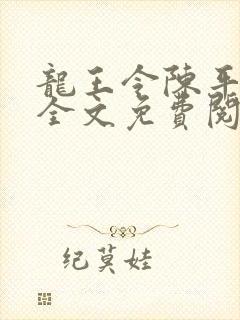 龍王令陳平
全文免費閱
纪莫娃